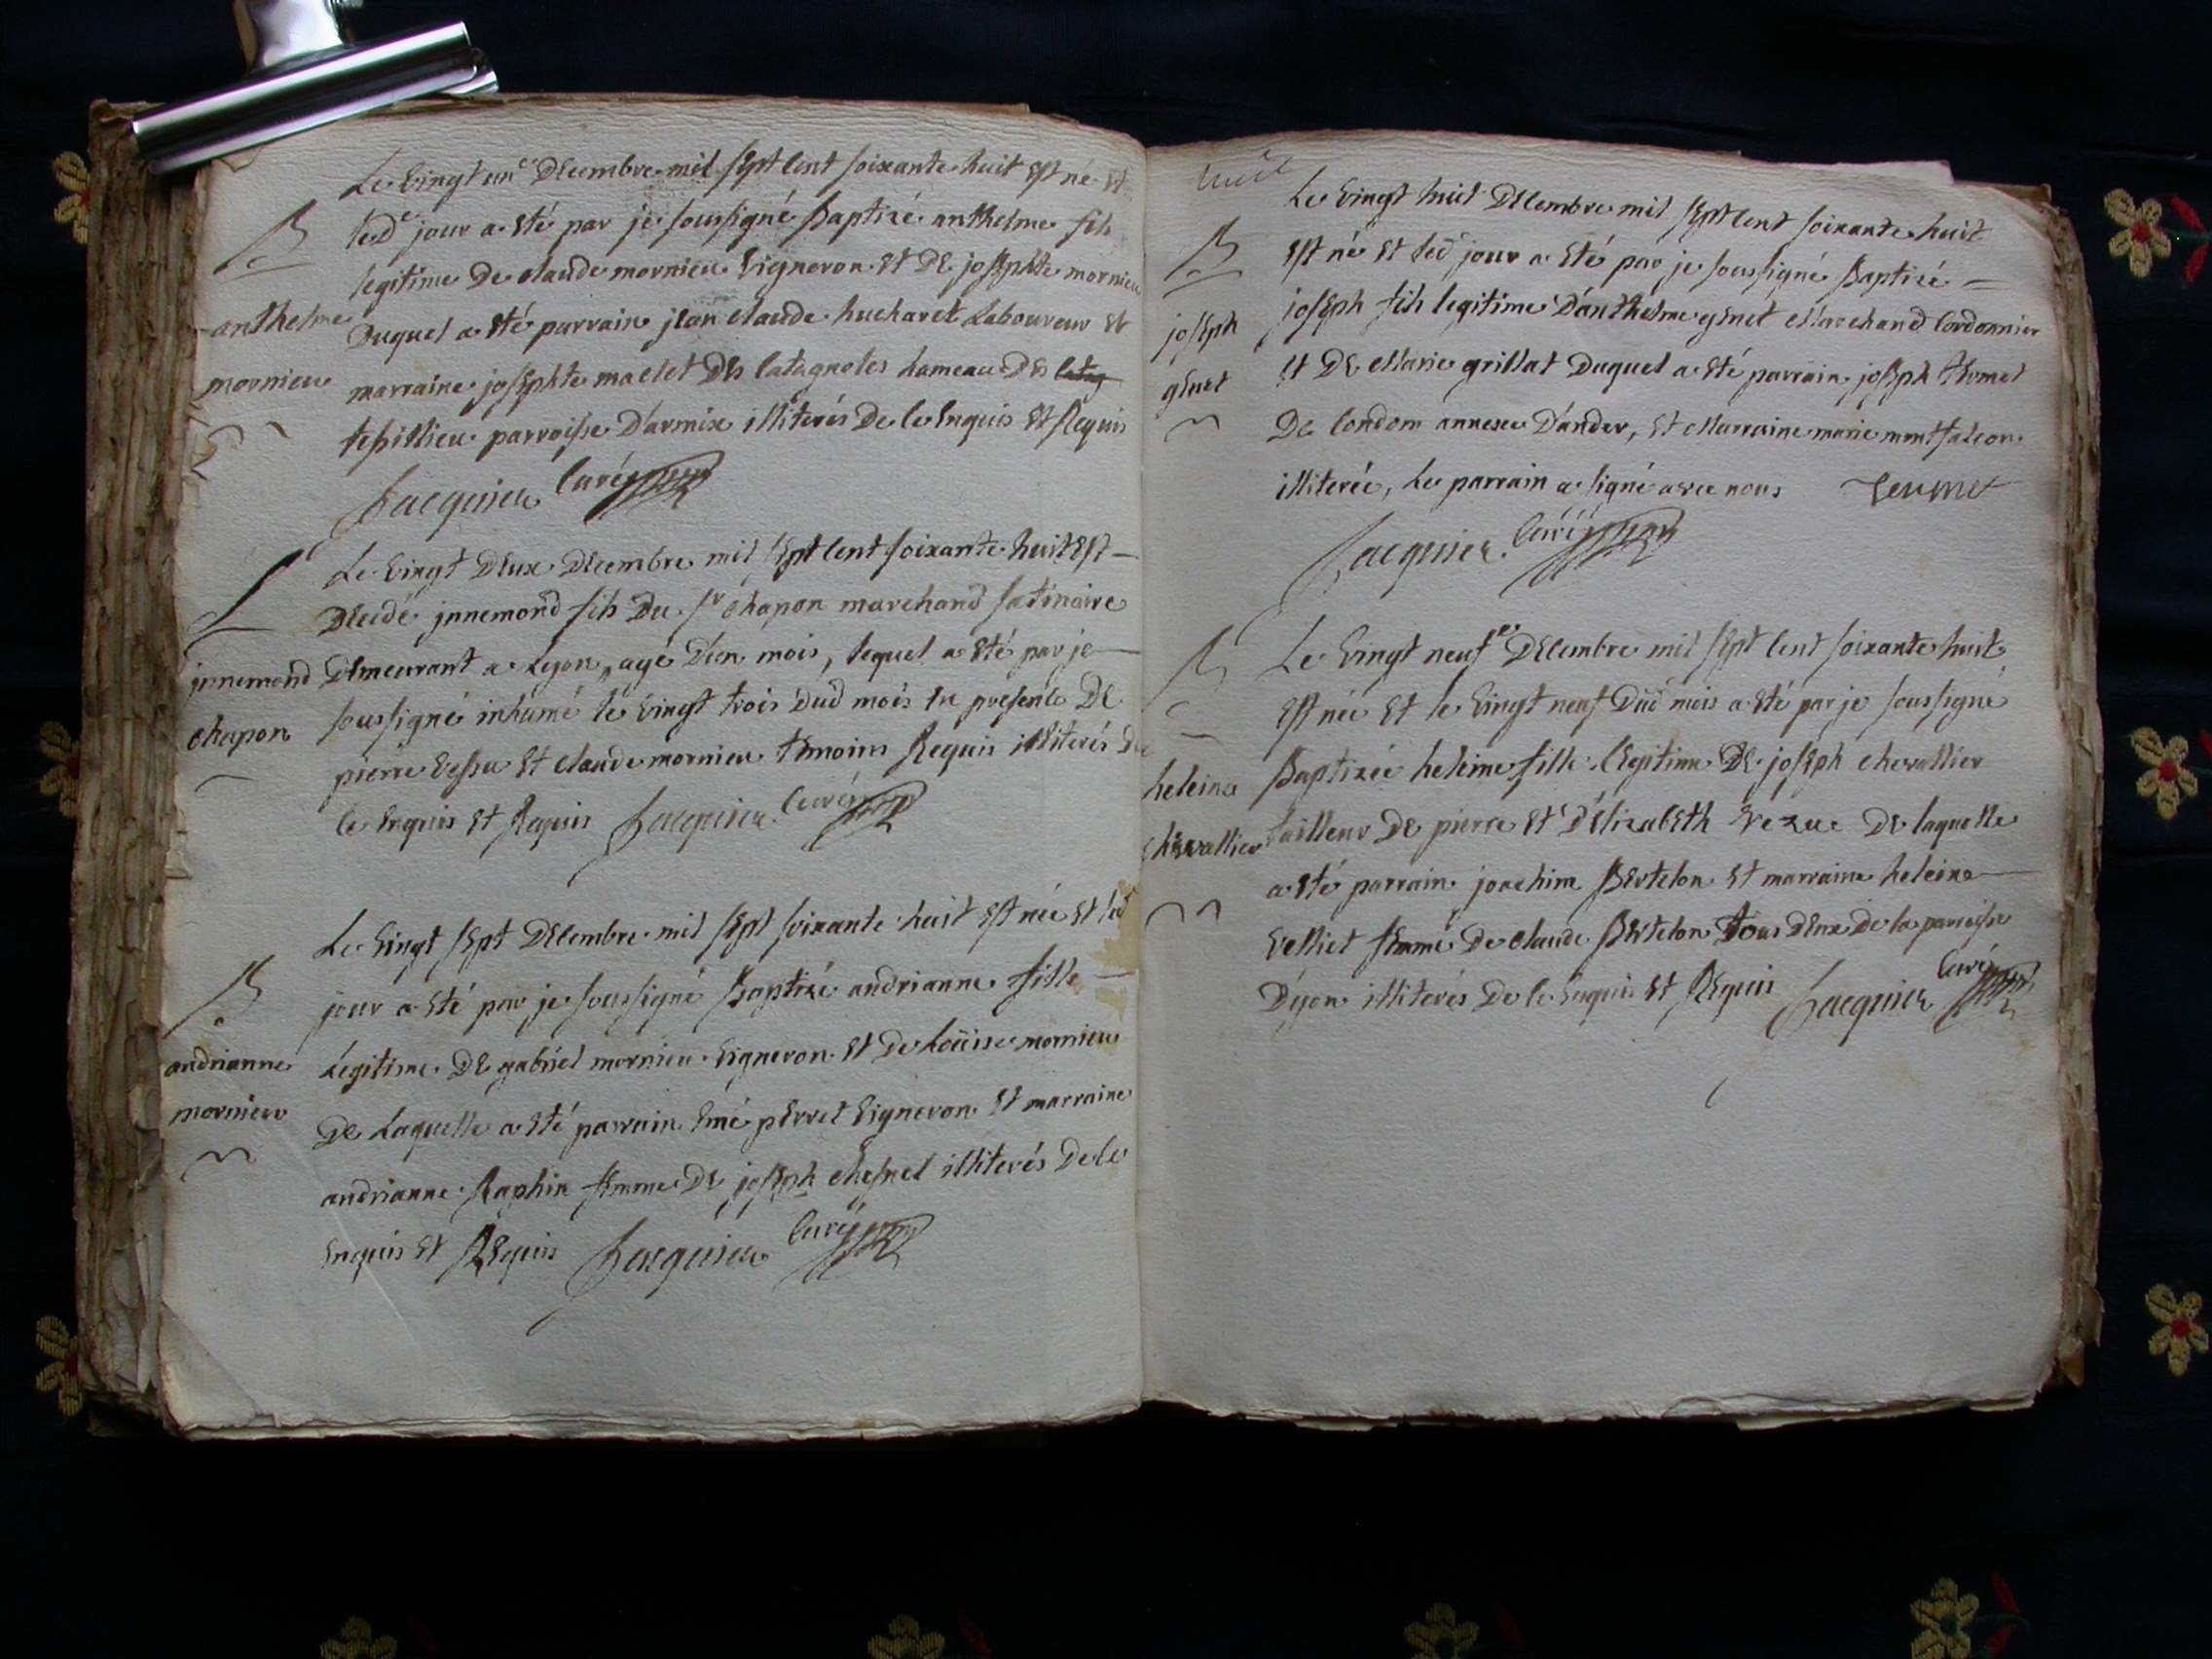 Le vingt un decembre mil sept cent soixante huit est né et
led jour a eté par je soussigné Baptizé anthelme fils
legitime de claude mornieu vigneron et de josephte mornieu
Duquel a eté parrain jean claude hucharet Laboureur et
marraine josephte maclet des catagnoles hameau des
parroisse D'armix illiterés De ce Enquis et Requis
Jacquier Curé
B
anthelme
mornieu
Le vingt deux decembre mil sept cent soixante huit est
decédé jnnemond fils du Sr chapon marchand satinaire
demeurant a Lyon, agé d'un mois, lequel a eté par je
soussigné inhumé le vingt trois dud mois en presence de
pierre vessu et claude mornieu temoins Requis illiterés de
ce enquis et Requis Jacquier Curé
S
jnnemond
chapon
Le vingt sept decembre mil sept soixante huit est née et led
jour a eté par je soussigné Baptizé andrianne fille
Legitime de gabriel mornieu vigneron et de Loüise mornieu
de Laquelle a eté parrain Emé perret vigneron et marraine
andrianne Raphin femme de joseph chesnel illiterés de ce
enquis et Requis Jacquier Curé
B
andrianne
mornieu
huit
Le vingt huit decembre mil sept cent soixante huit
est né et led jour a eté par je soussigné Baptizé
joseph fils legitime d'anthelme genet Marchand Cordonnier
et de Marie grillat duquel a eté parrain joseph temet
de Condom annexe d'ander, et Marraine marie montfalcon
illiterée, Le parrain a signé avec nous Temet
Jacquier Curé
B
joseph
genet
Le vingt neuf decembre mil sept cent soixante huit
est née et le vingt neuf dud mois a eté par je soussigné
Baptizée heleine fille legitime de joseph chevallier
tailleur de pierre et d'elizabeth de laquelle
a eté parrain joachim Bertelon et marraine heleine
velliet femme de claude Bertelon tous deux de la parroisse
D'yon illiterés de ce enquis et Requis Jacquier Curé
B
heleine
chevallier